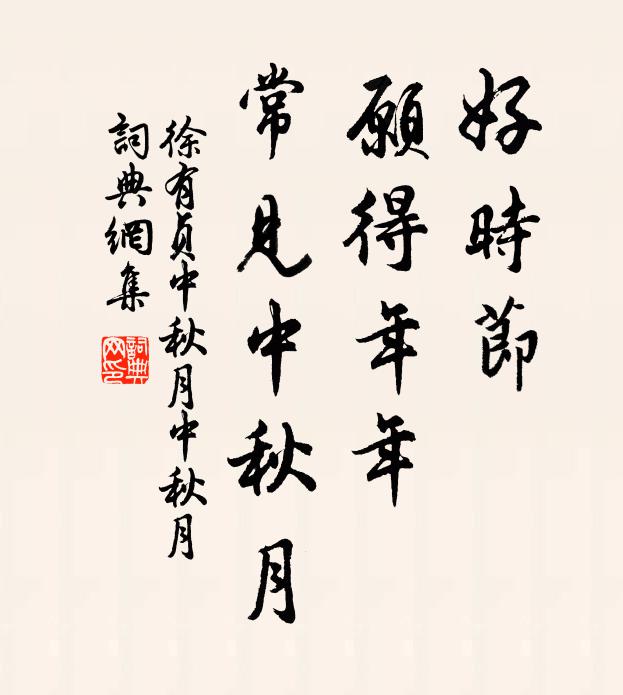 好時節
願得年年
常見中秋月
徐有貞中秋月中秋月
詞典網集
詞典
网印